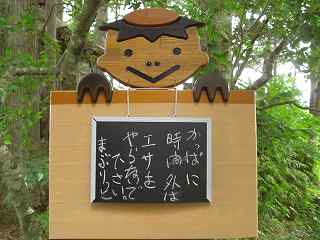 かっぱに
時間外は
エサを
やらないで
下さい。
まぶりっと